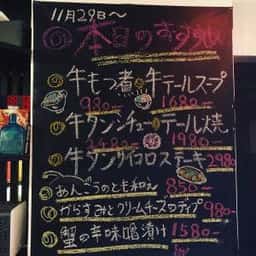 11月29日～
本日のおすすめ
牛もつ煮 牛テールスープ
980- 1680-
牛タンシチュー 牛テール焼
2480- 1980-
牛タンサイコロステーキ 2980-
あんこうのとも和え 850-
からすみとクリームチーズのディップ 980-
蟹の辛味噌漬け 1580-